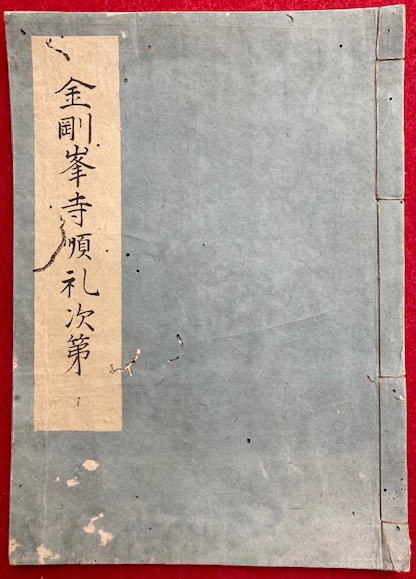 金剛峯寺順礼次第